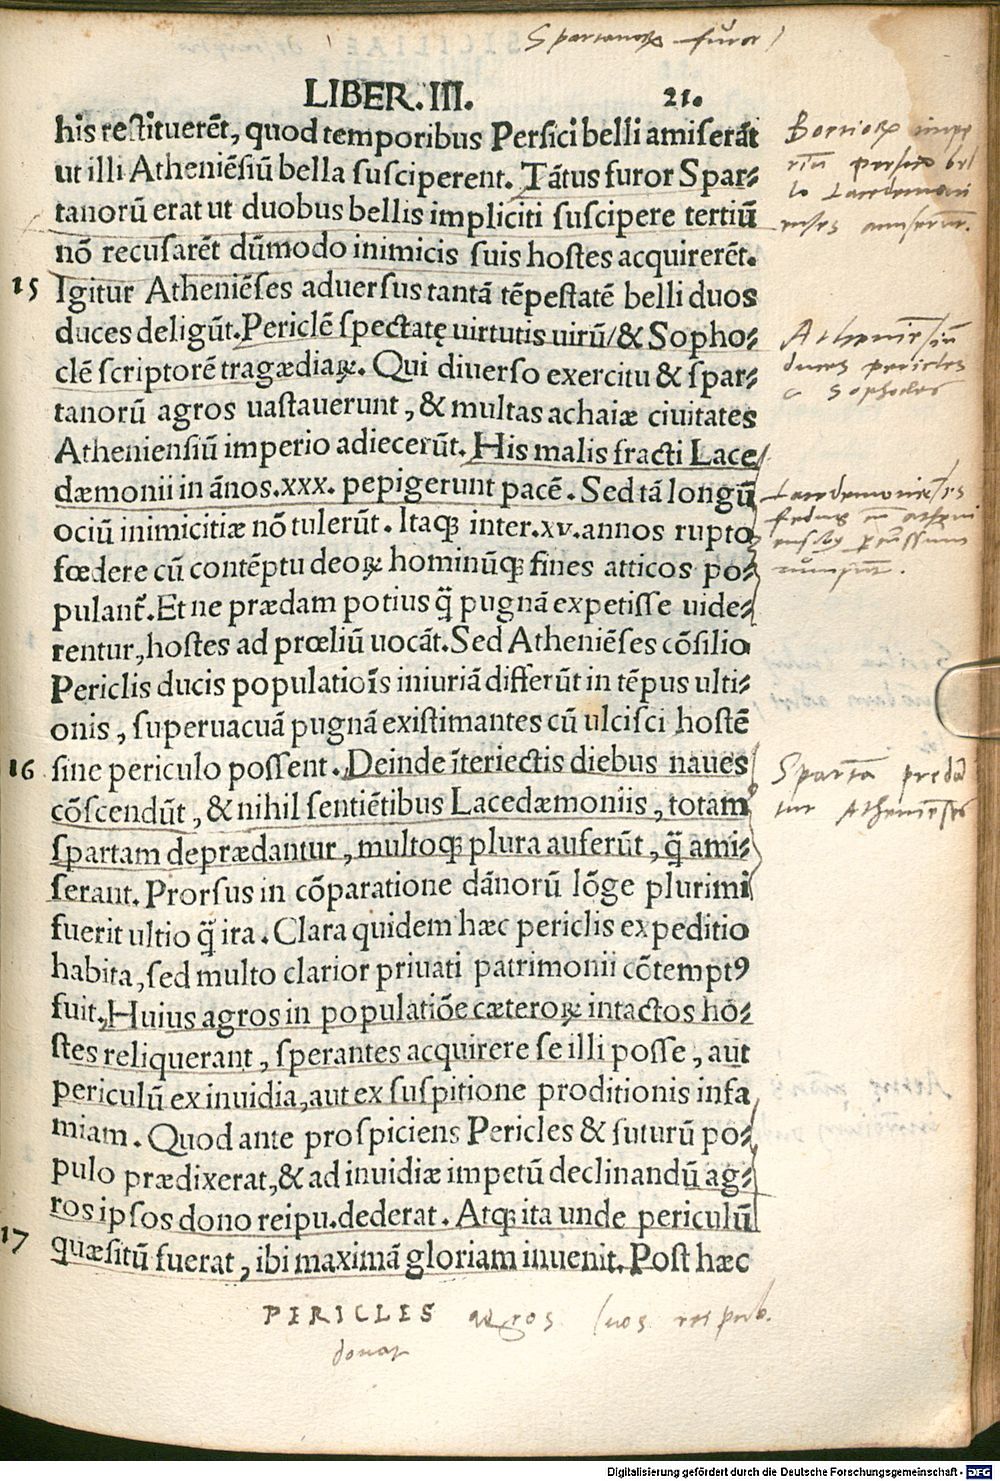 Spartanoꝝ furor
LIBER.III. 21.
his restituerēt, quod temporibus Persici belli amiserāt
ut illi Atheniēsiū bella susciperent. Tātus furor Spar⸗
tanorū erat ut duobus bellis impliciti suscipere tertiū
nō recusarēt dūmodo inimicis suis hostes acquirerēt.
15 Igitur Atheniēses aduersus tantā tēpestatē belli duos
duces deligūt. Periclē spectatę uirtutis uirū/& Sopho⸗
clē scriptorē tragædiaꝝ. Qui diuerso exercitu & spar⸗
tanorū agros uastauerunt, & multas achaiæ ciuitates
Atheniensiū imperio adiecerūt. His malis fracti Lace
dæmonii in ānos.xxx. pepigerunt pacē. Sed tā longū
ociū inimicitiæ nō tulerūt. Itaqꝫ inter.xv.annos rupto
fœdere cū contēptu deoꝝ hominūqꝫ fines atticos po⸗
pulant̄. Et ne prædam potius q̄ pugnā expetisse uide⸗
rentur, hostes ad prœliū uocāt. Sed Atheniēses cōsilio
Periclis ducis populatiōis iniuriā differūt in tēpus ulti⸗
onis, superuacuā pugnā existimantes cū ulcisci hostē
16 sine periculo possent. Deinde īteriectis diebus naues
cōscendūt, & nihil sentiētibus Lacedæmoniis, totam
spartam deprædantur, multoqꝫ plura auferūt, q̄ ami⸗
serant. Prorsus in cōparatione dānorū lōge plurimi
fuerit ultio q̄ ira. Clara quidem hæc periclis expeditio
habita, sed multo clarior priuati patrimonii cōtemptꝯ
fuit. Huius agros in populatiōe cæteroꝝ intactos ho⸗
stes reliquerant, sperantes acquirere se illi posse, aut
periculū ex inuidia, aut ex suspitione proditionis infa
miam. Quod ante prospiciens Pericles & futurū po⸗
pulo prædixerat, & ad inuidiæ impetū declinandū ag⸗
ros ipsos dono reipu.dederat. Atqꝫ ita unde periculū
17 quæsitū fuerat, ibi maximā gloriam inuenit. Post hæc
Atheniēsiū
duces pericles
& Sophocles
Spartā predā
tur Atheniēses
PERICLES agros suos rei pub.
donat
Digitalisierung gefördert durch die Deutsche Forschungsgemeinschaft - DFG